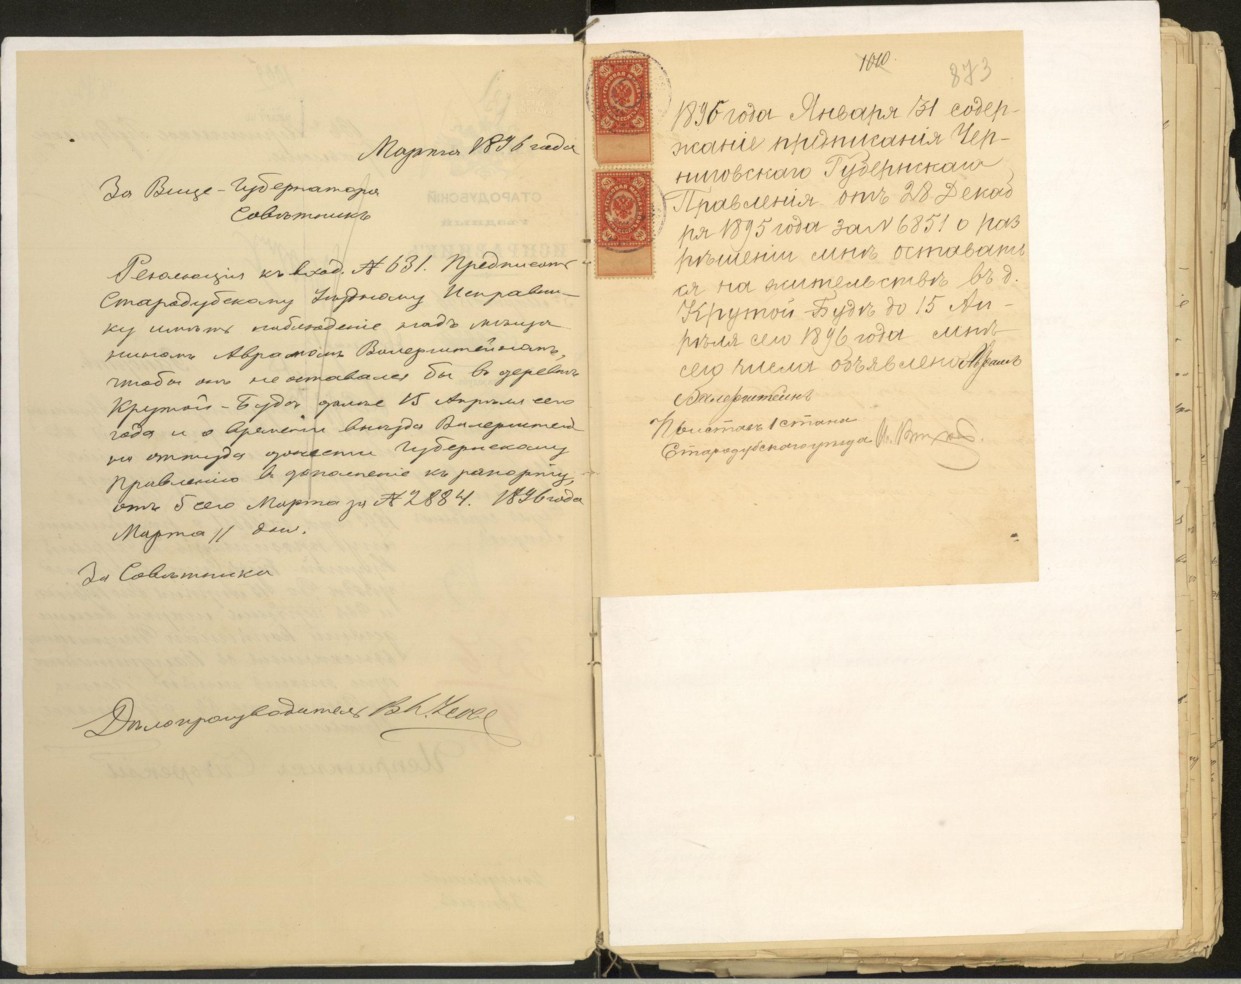 Марта 1896 года
За Вице-Губернатора
Совѣтникъ
Резолюція къ вход. № 631. Предписать
Стародубскому Уѣздному Исправни-
ку имѣть наблюденіе надъ мѣща-
ниномъ Аврамомъ Валерштейномъ,
чтобы онъ не оставался бы въ деревнѣ
Крутой-Будѣ далѣе 15 Апрѣля сего
года и о времени выѣзда Валерштей-
на оттуда донести Губернскому
Правленію въ дополненіе къ рапорту,
отъ 5 сего Марта за № 2884. 1896 года
Марта 11 дня.
За Совѣтника
Дѣлопроизводитель
1010
873
1896 года Января 31 содер-
жаніе предписанія Чер-
ниговскаго Губернскаго
Правленія отъ 28 Декаб
ря 1895 года за № 6851 о раз
рѣшеніи мнѣ оставать
ся на жительствѣ въ д.
Крутой-Будѣ до 15 Ап-
рѣля сего 1896 года мнѣ
сего числа объявлено Абрамъ
Валерштейнъ
Приставъ 1 стана
Стародубскаго уѣзда